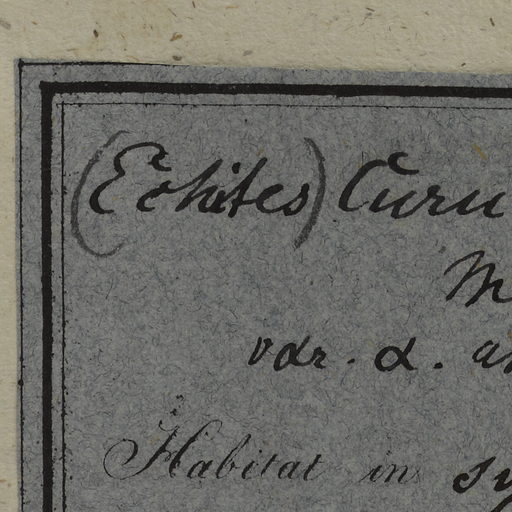 (Echites) Curu
M
var. α. a
Habitat in sy